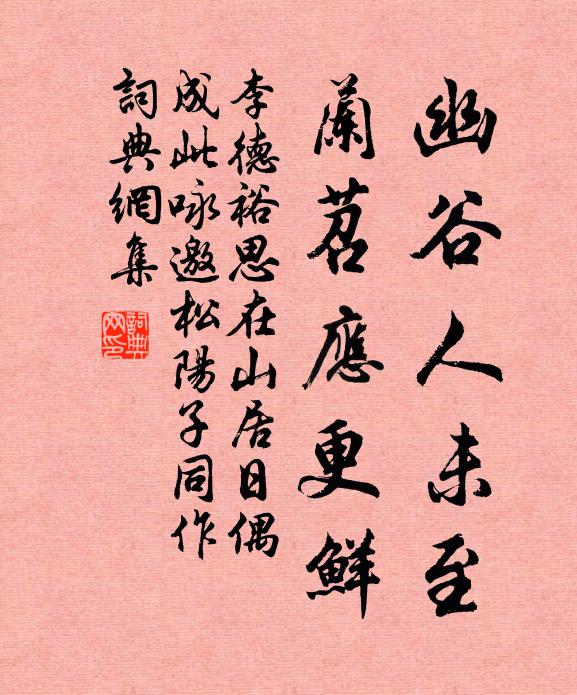 幽谷人未至
蘭苕應更鮮
李德裕思在山居日偶
成此咏邀松陽子同作
詞典網集
詞典
网印